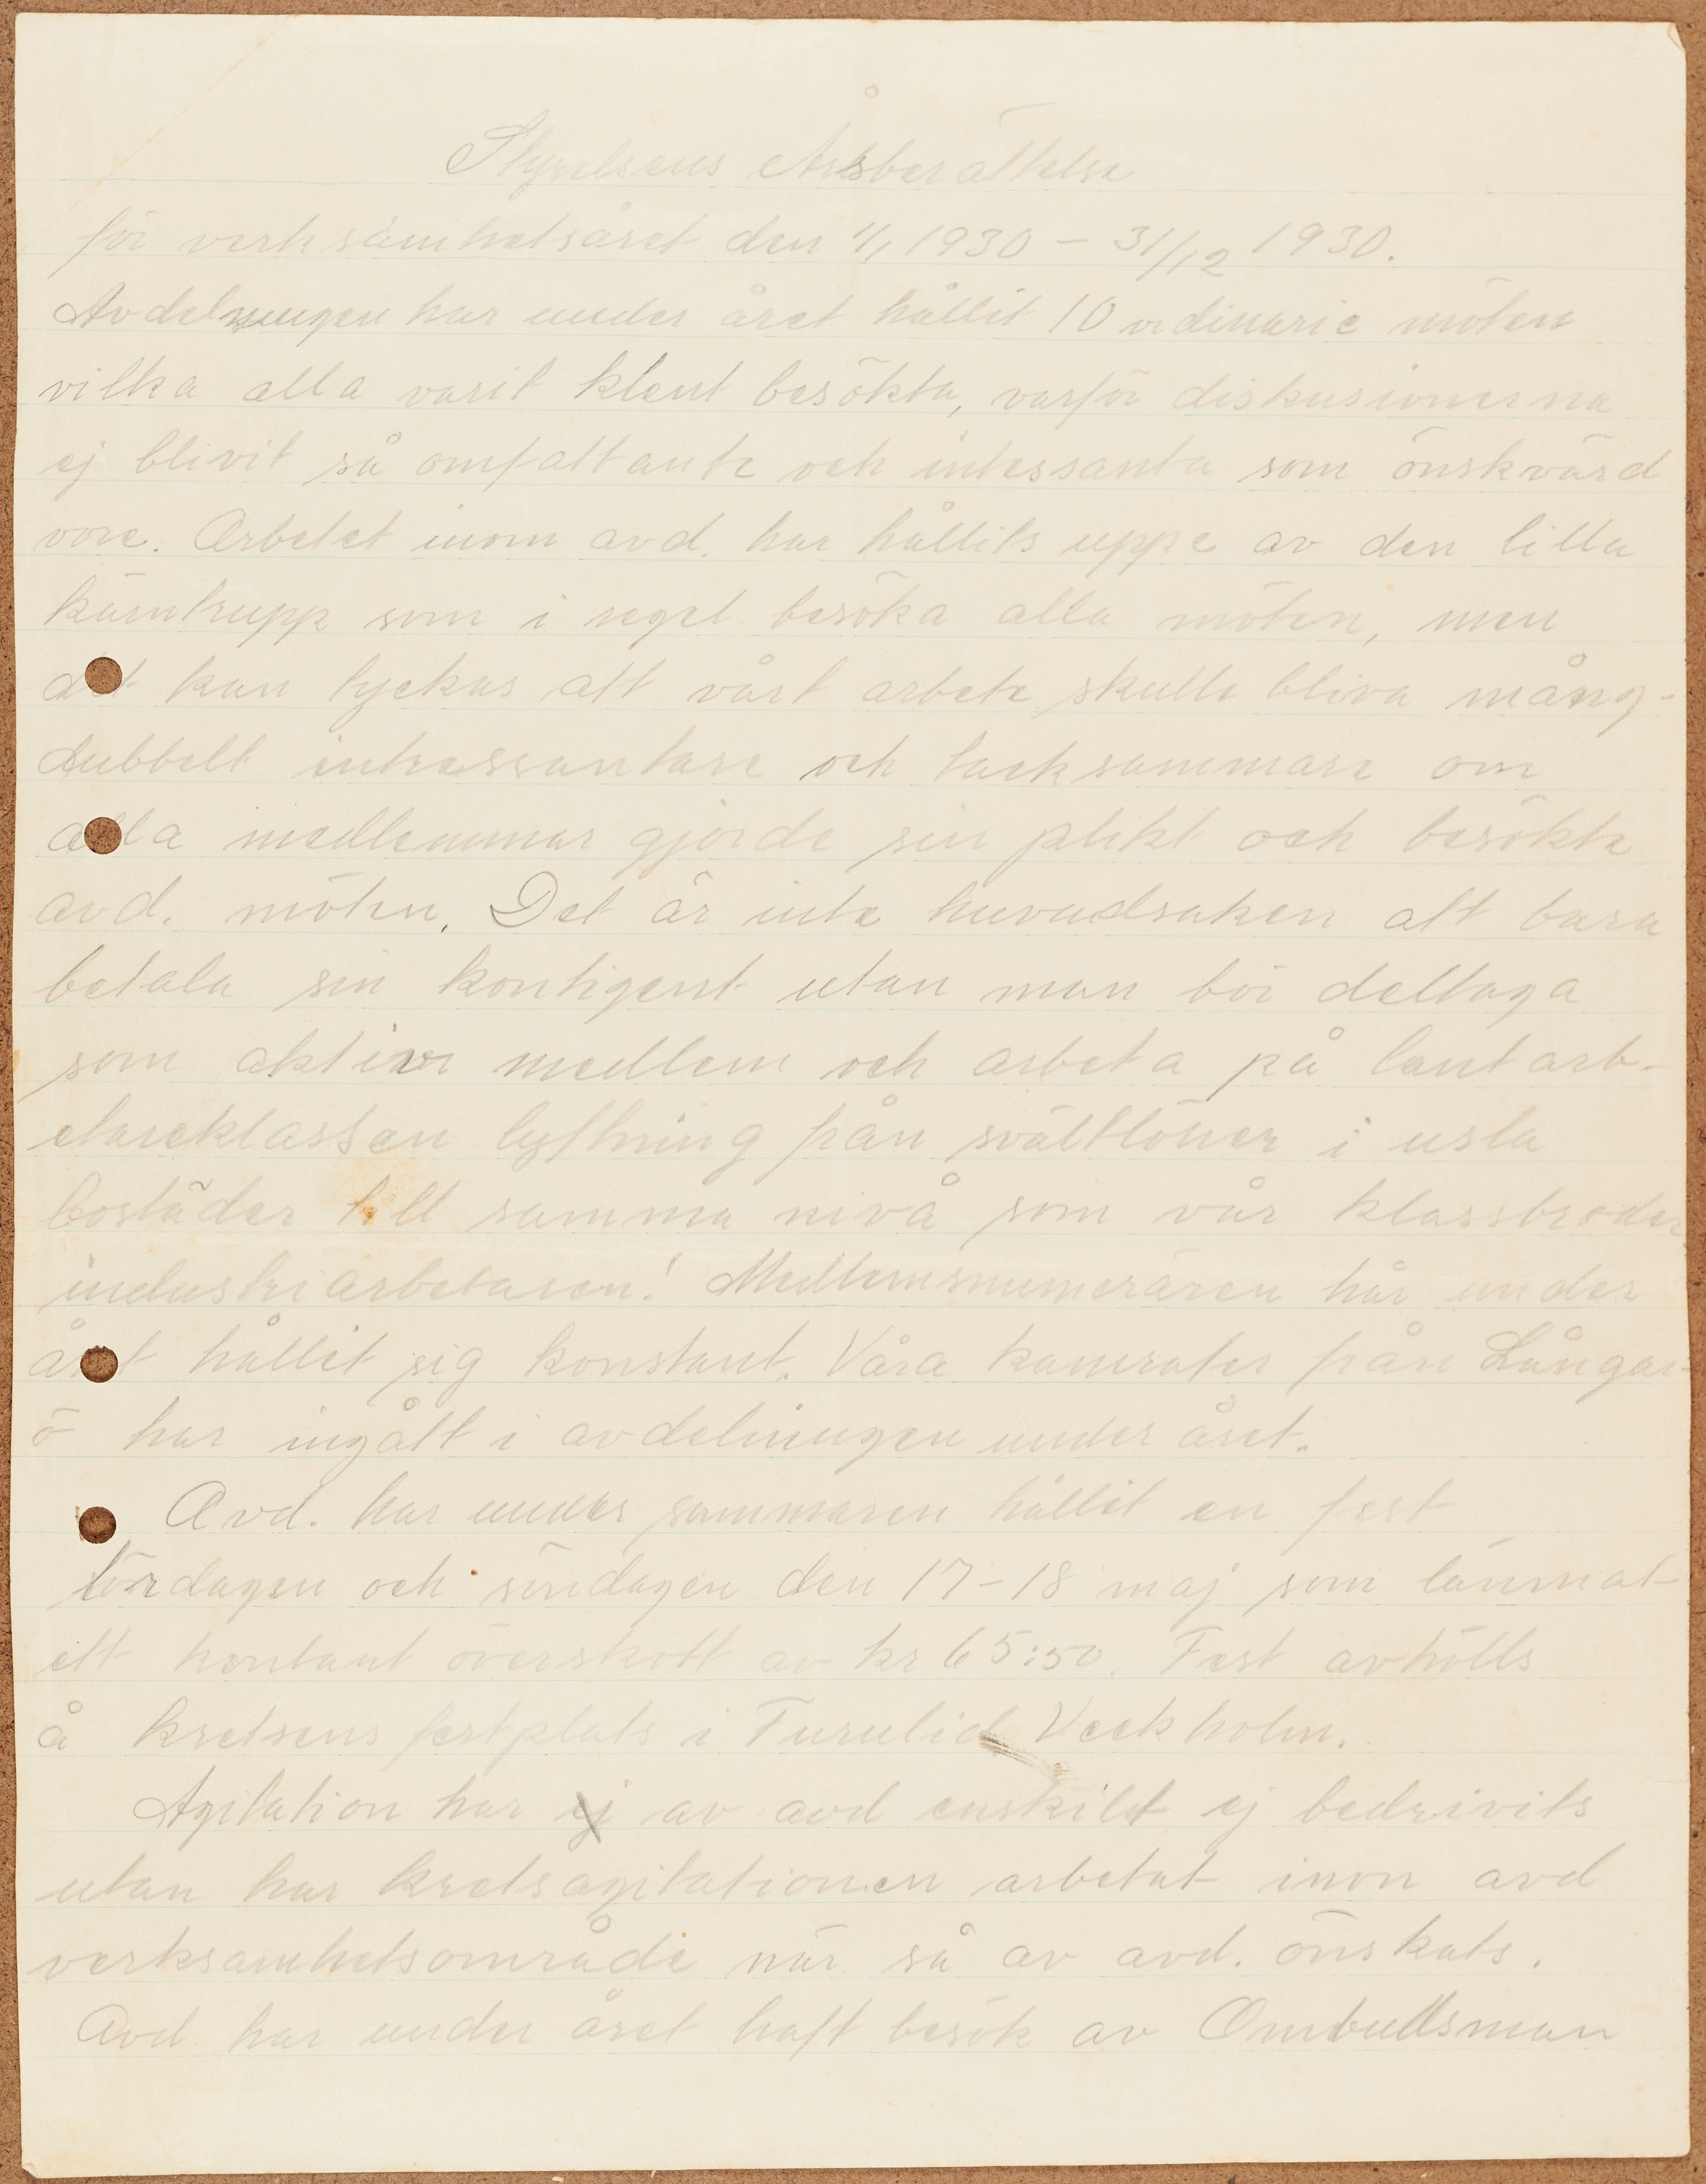 Styrelsens Årsberättelse
för verksamhetsåret den 1/1 1930 – 31/12 1930.
Avdelningen har under året hållit 10 ordinarie möten
vilka alla varit klent besökta, varför diskusionerna
ej blivit så omfattante och intessanta som önskvärd
vore. Arbetet inom avd. har hållits uppe av den lilla
kärntrupp som i regel besöka alla möten, men
det kan tyckas att vårt arbete skulle bliva mång-
dubbelt intressantare och tacksammare om
alla medlemmar gjorde sin plikt och besökte
avd. möten. Det är inte huvudsaken att bara
betala sin kontigent utan man bör deltaga
som aktiv medlem och arbeta på lantarb-
etareklassen lyftning från svältlöner i usla
bostäder till samma nivå som vår klassbroder
industriarbetaren! Medlemsnumerären har under
året hållit sig konstant. Våra kamrater från Långar-
ö har ingått i avdelningen under året.
Avd. har under sommaren hållit en fest
lördagen och söndagen den 17–18 maj som lämnat
ett kontant överskott av kr 65:50. Fest avhölls
å kretsens festplats i Turulid Veckholm.
Agitation har ej av avd enskilt ej bedrivits
utan har kretsagitationen arbetat inon avd
verksamhetsområde när så av avd. önskats.
Avd. har under året haft besök av Ombudsman